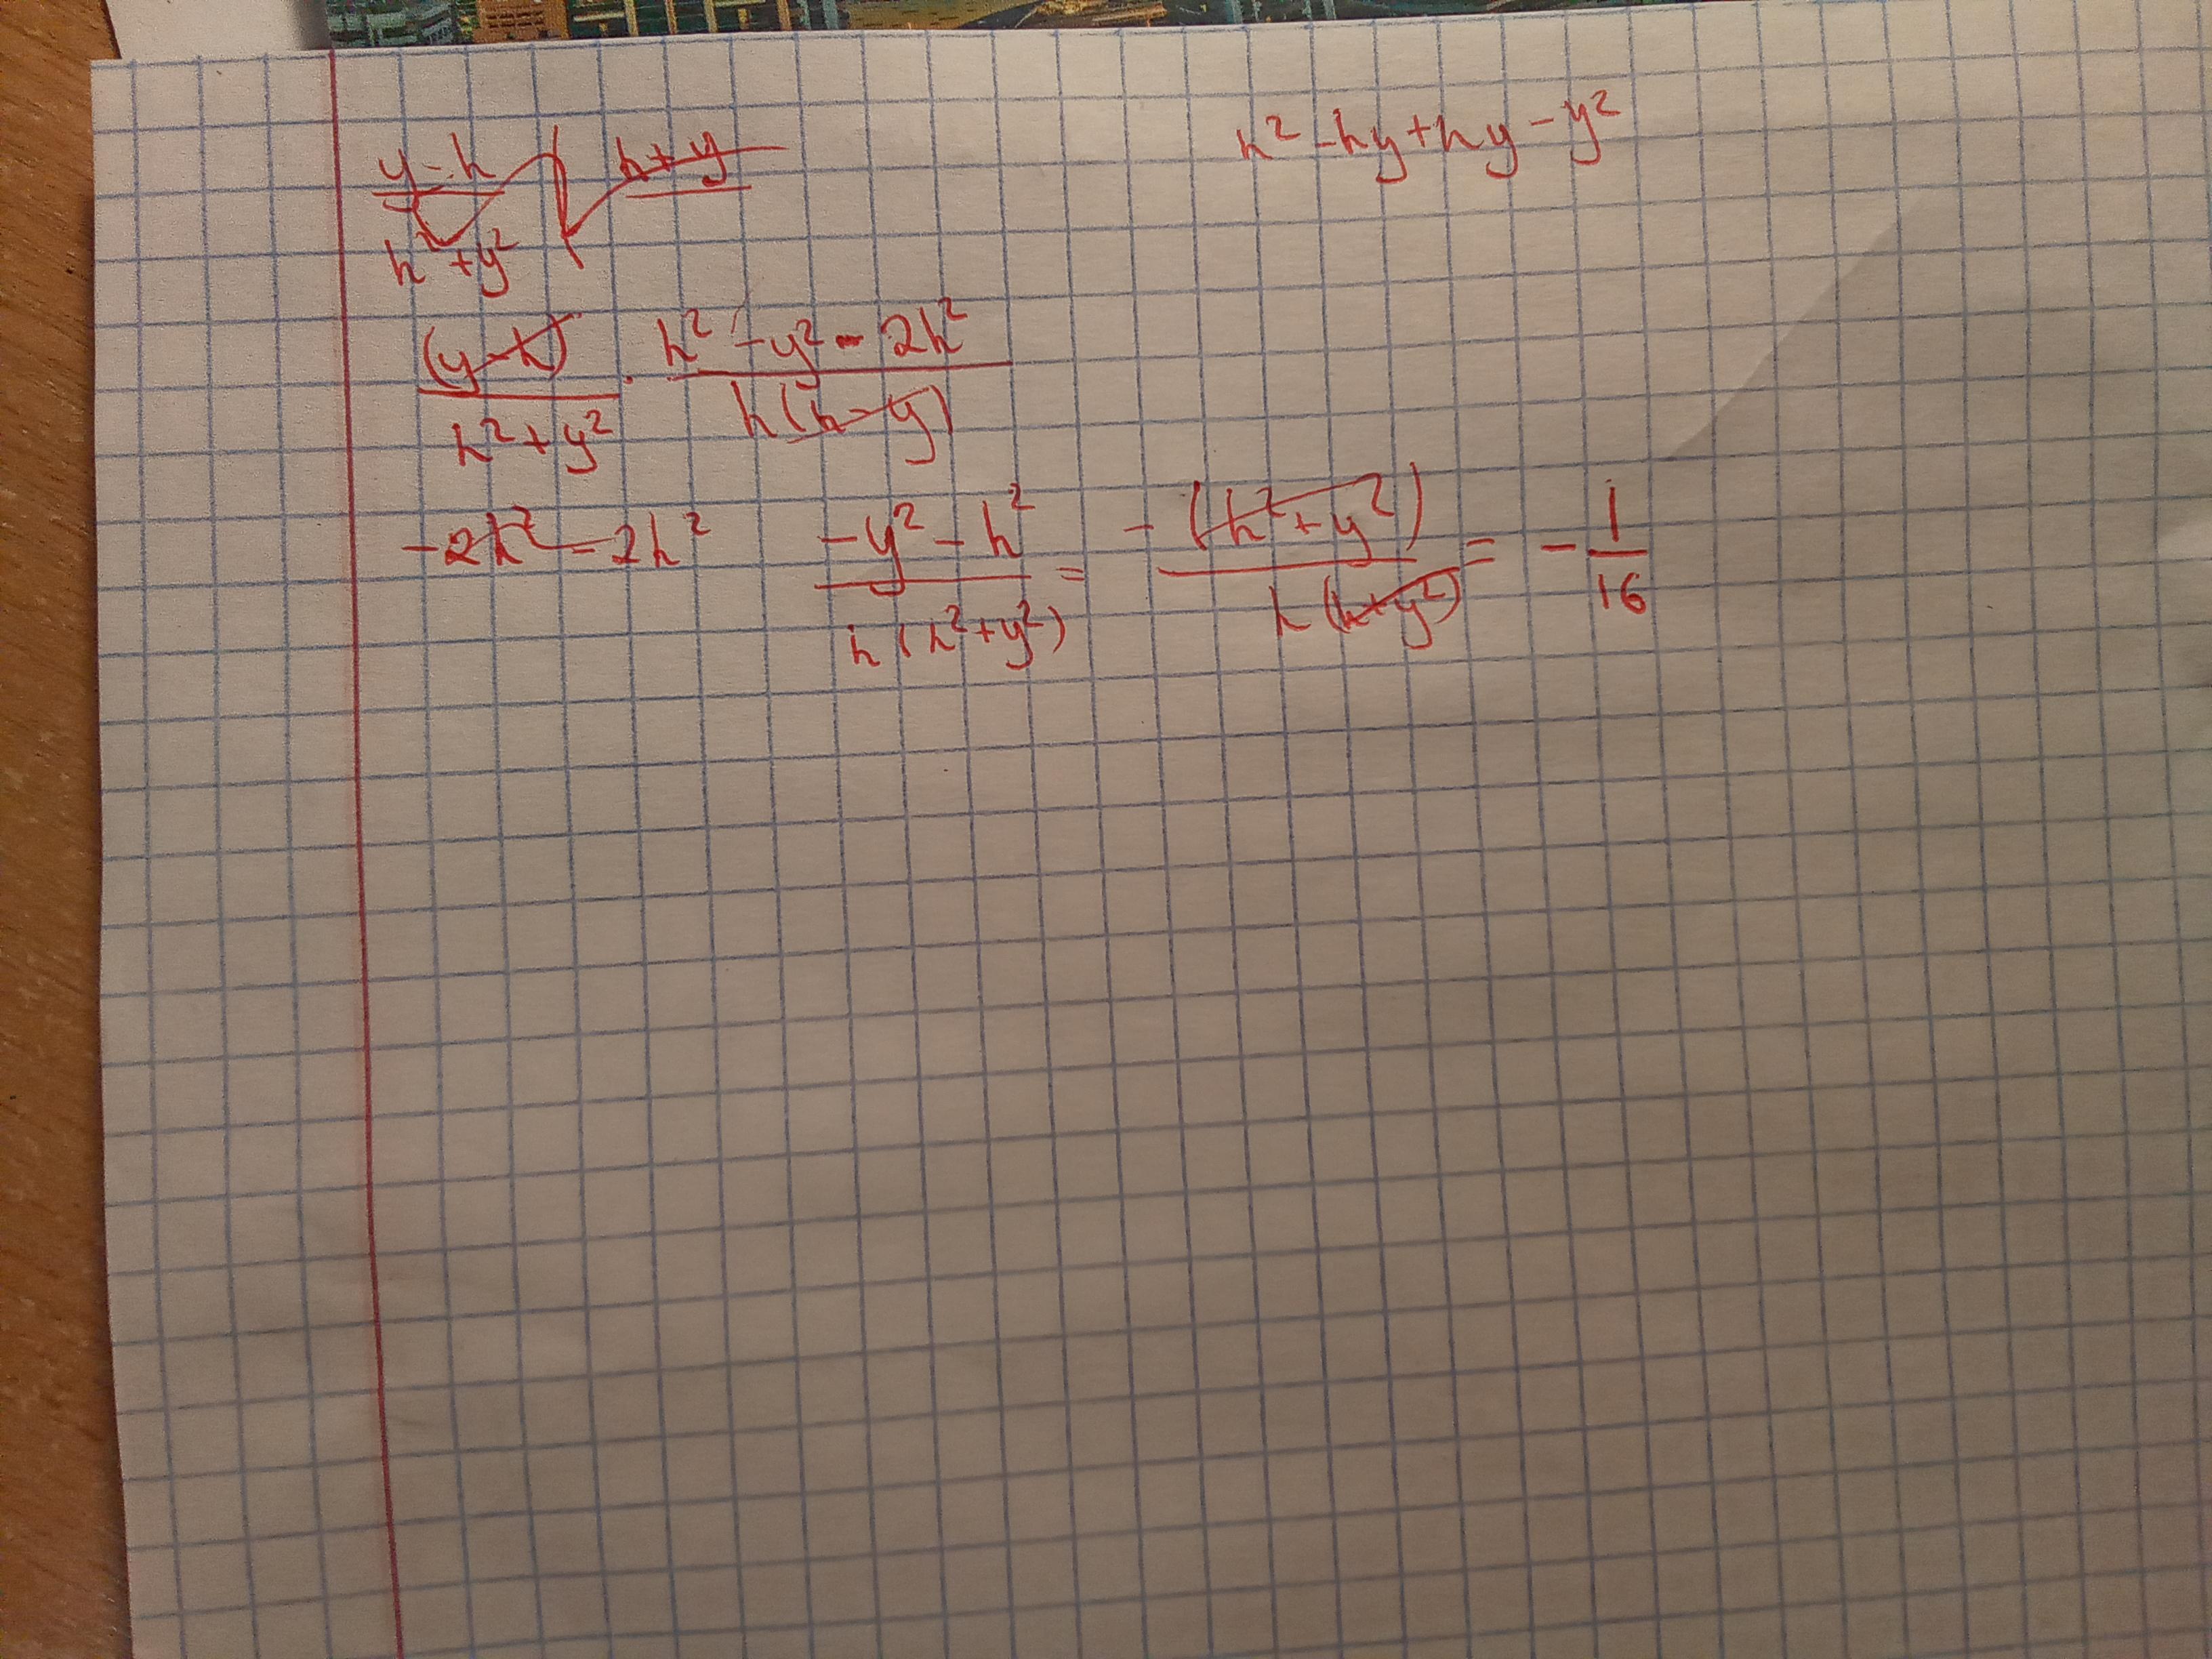 y-h / h²+y² ( h+y h²-hy+hy-y²
(y-h) / h²+y² · h²-y²-2h² / h(h-y)
-2h²-2h² -y²-h² / h(h²+y²) = -(h²+y²) / h(h+y²) = -1/16